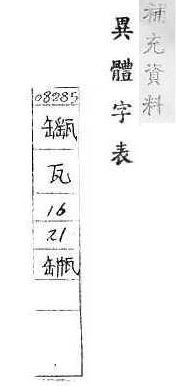 補充資料
異體字表
08285
瓦
16
21